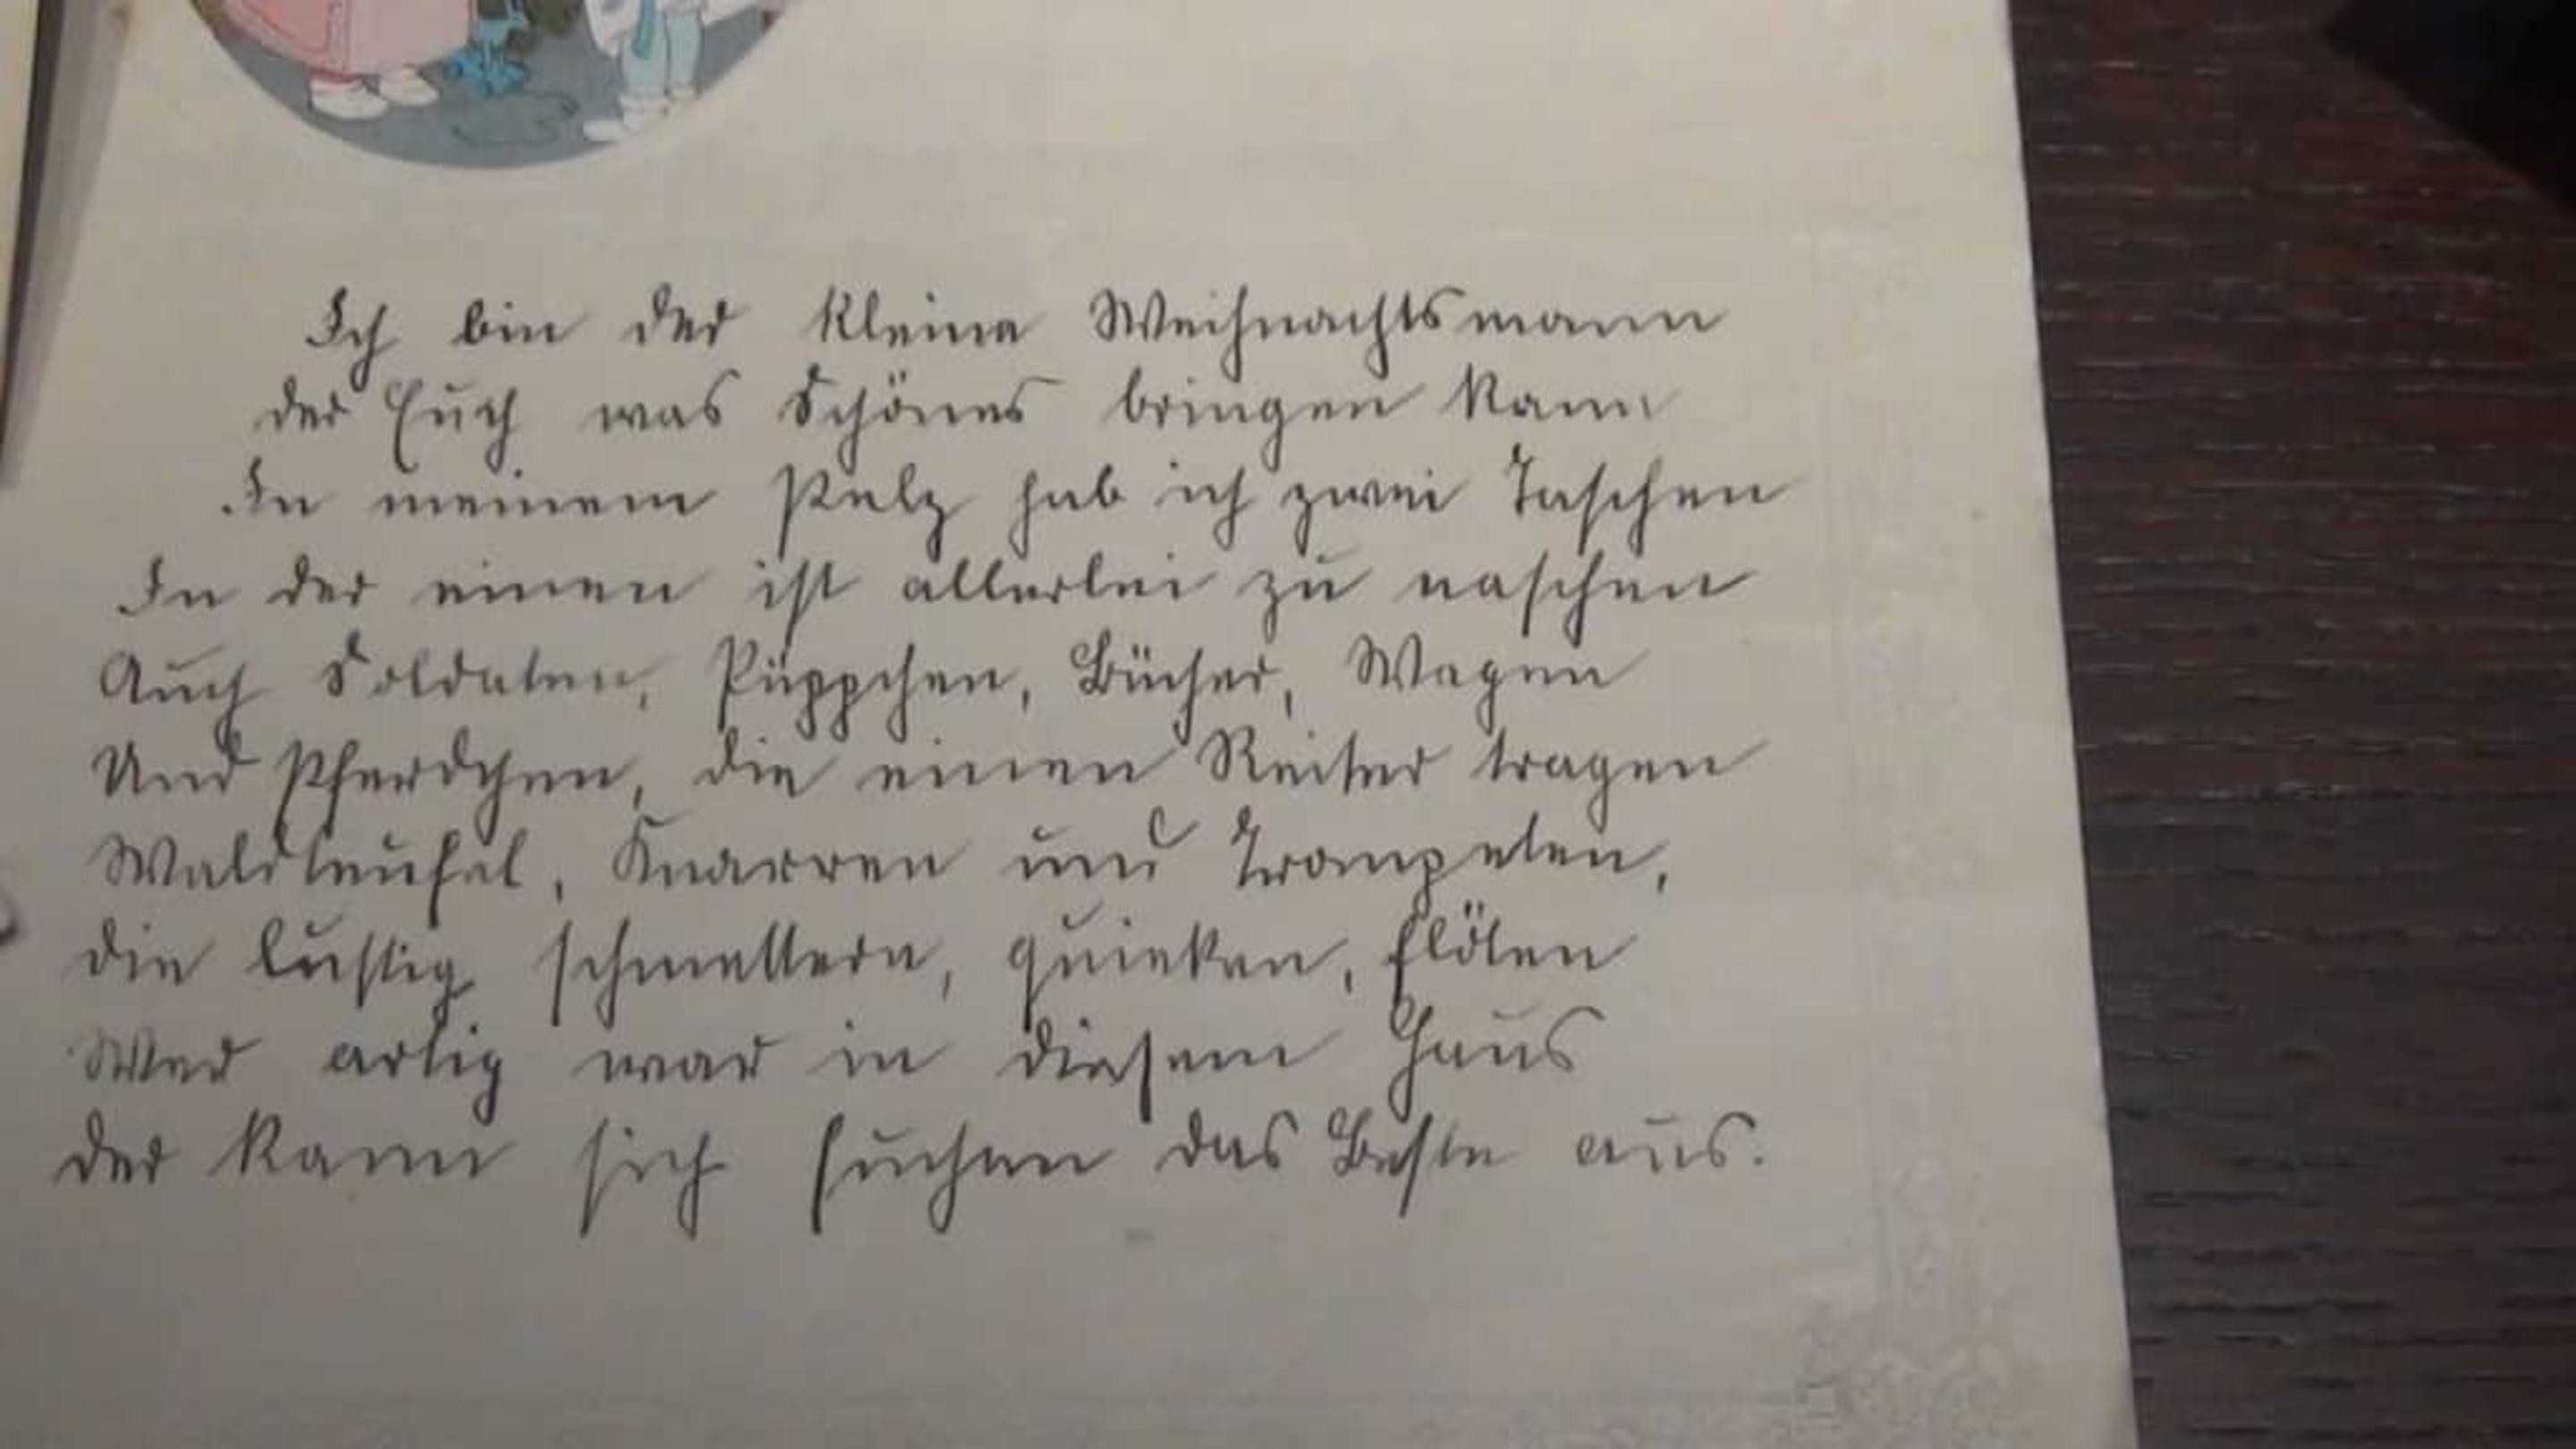 Ich bin der kleine Weihnachtsmann
der Euch was Schönes bringen kann
In meinem Pelz hab ich zwei Taschen
In der einen ist allerlei zu naschen
Auch Soldaten, Püppchen, Bücher, Wagen
Und Pferdchen, die einen Reiter tragen
Waldteufel, Knarren und Trompeten,
die lustig schmettern, quieken, flöten
Wer artig war in diesem Haus
der kann sich suchen das Beste aus.